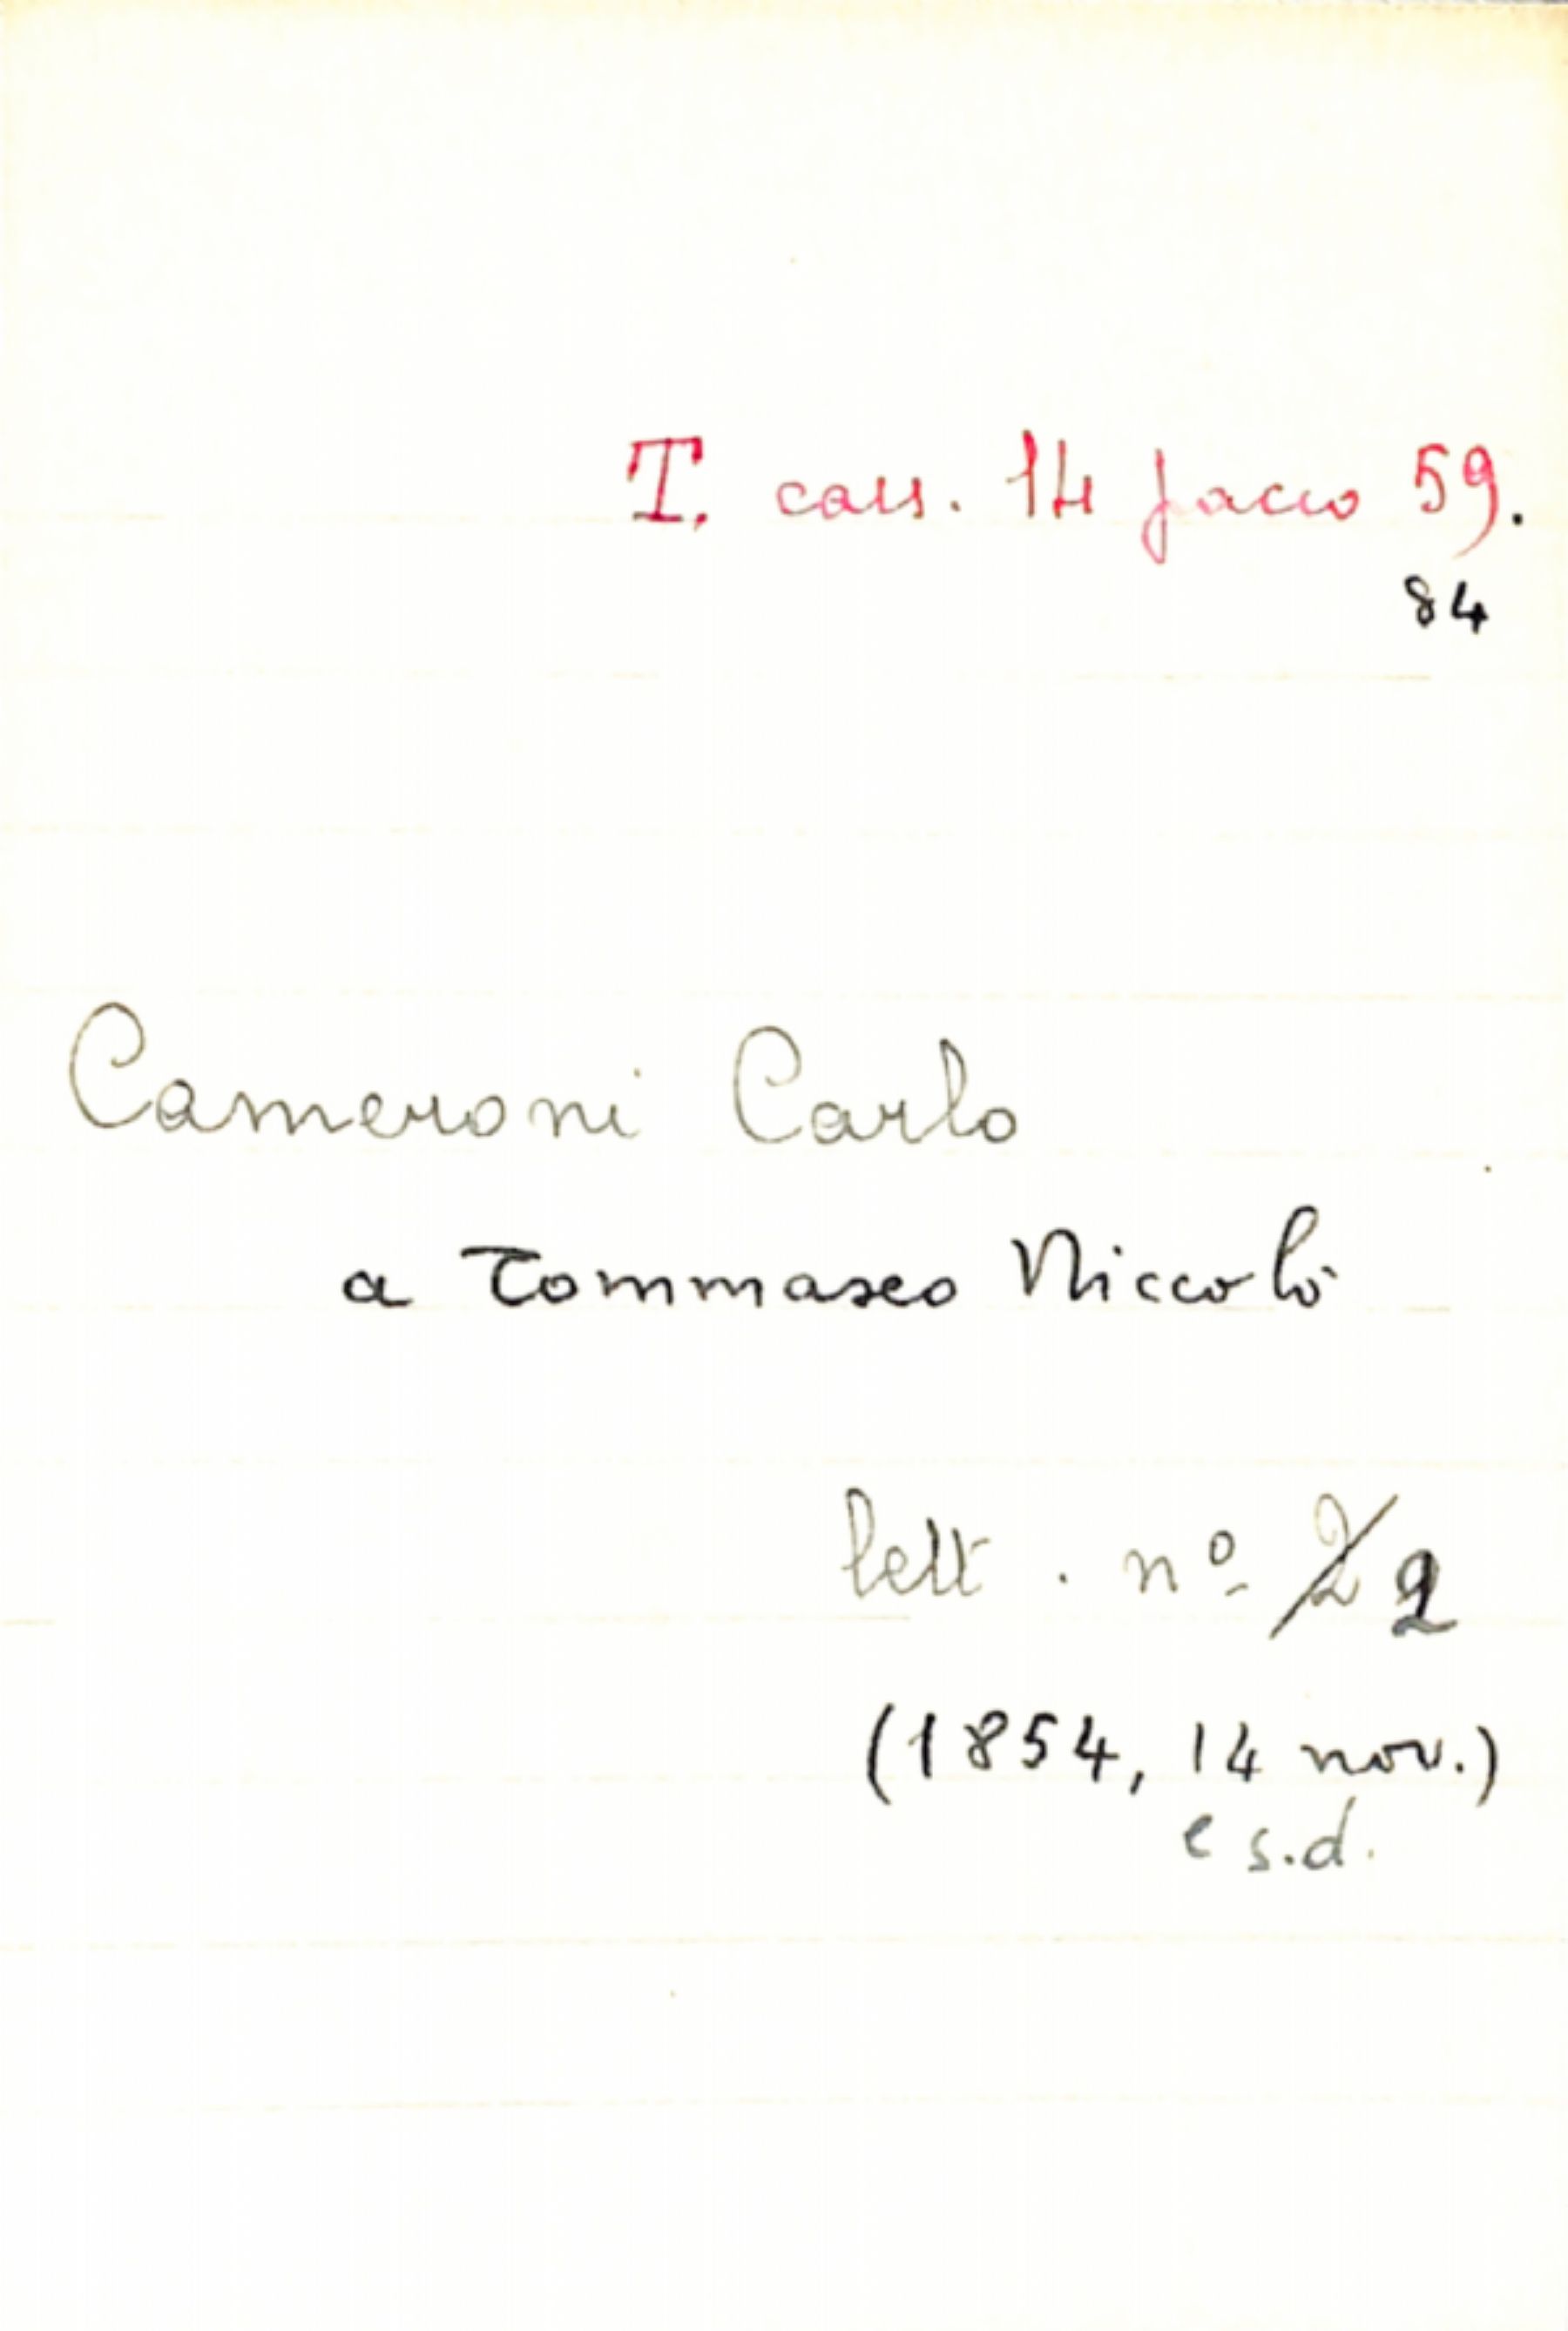 T. cass. 14 facio 59.
84
Cameroni Carlo
a Tommaseo Niccolò
lett. nº 2 2
(1854, 14 nov.)
e s.d.